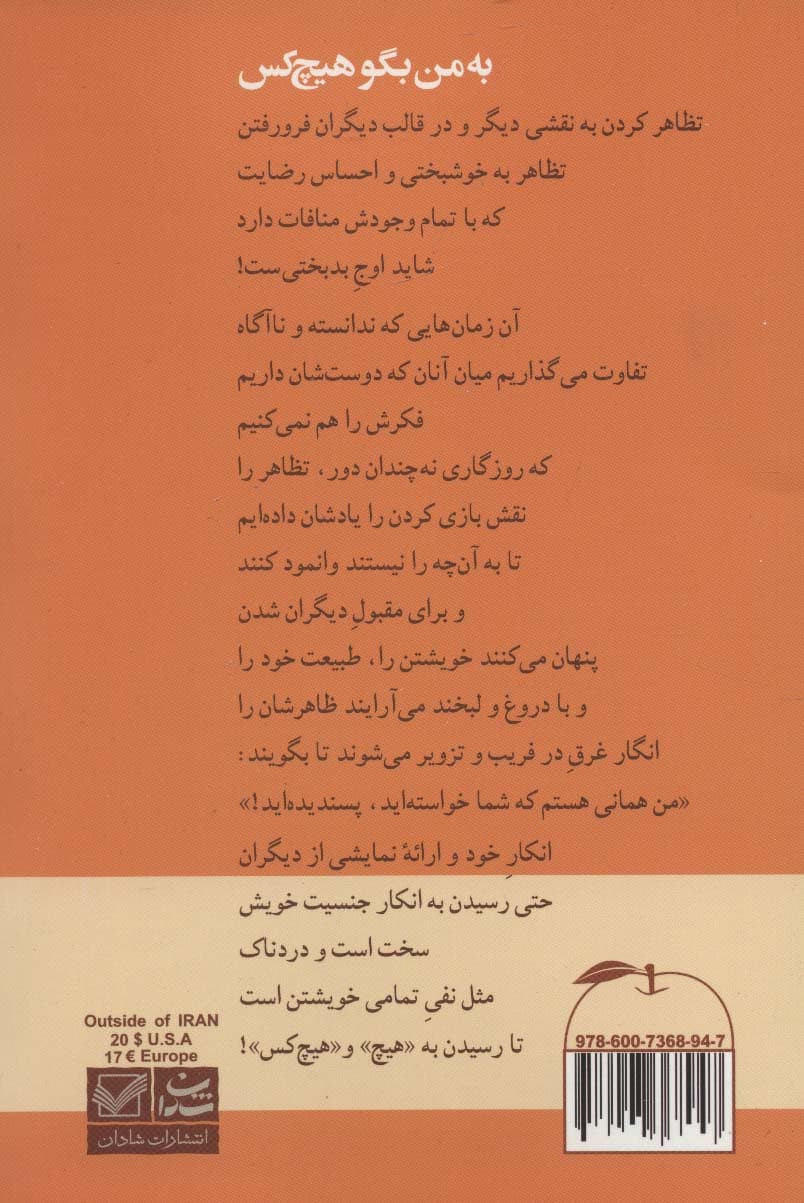 به من بگو هیچ‌کس
تظاهر کردن به نقشی دیگر و در قالب دیگران فرورفتن
تظاهر به خوشبختی و احساس رضایت
که با تمام وجودش منافات دارد
شاید اوجِ بدبختی‌ست!
آن زمان‌هایی که ندانسته و ناآگاه
تفاوت می‌گذاریم میان آنان که دوست‌شان داریم
فکرش را هم نمی‌کنیم
که روزگاری نه‌چندان دور، تظاهر را
نقش بازی کردن را یادشان داده‌ایم
تا به آن‌چه را نیستند وانمود کنند
و برای مقبولِ دیگران شدن
پنهان می‌کنند خویشتن را، طبیعت خود را
و با دروغ و لبخند می‌آرایند ظاهرشان را
انگار غرقِ در فریب و تزویر می‌شوند تا بگویند:
«من همانی هستم که شما خواسته‌اید، پسندیده‌اید!»
انکارِ خود و ارائهٔ نمایشی از دیگران
حتی رسیدن به انکار جنسیت خویش
سخت است و دردناک
مثل نفیِ تمامی خویشتن است
تا رسیدن به «هیچ» و«هیچ‌کس»!
978-600-7368-94-7
Outside of IRAN
20 $ U.S.A
17 € Europe
شادان
انتشارات شادان